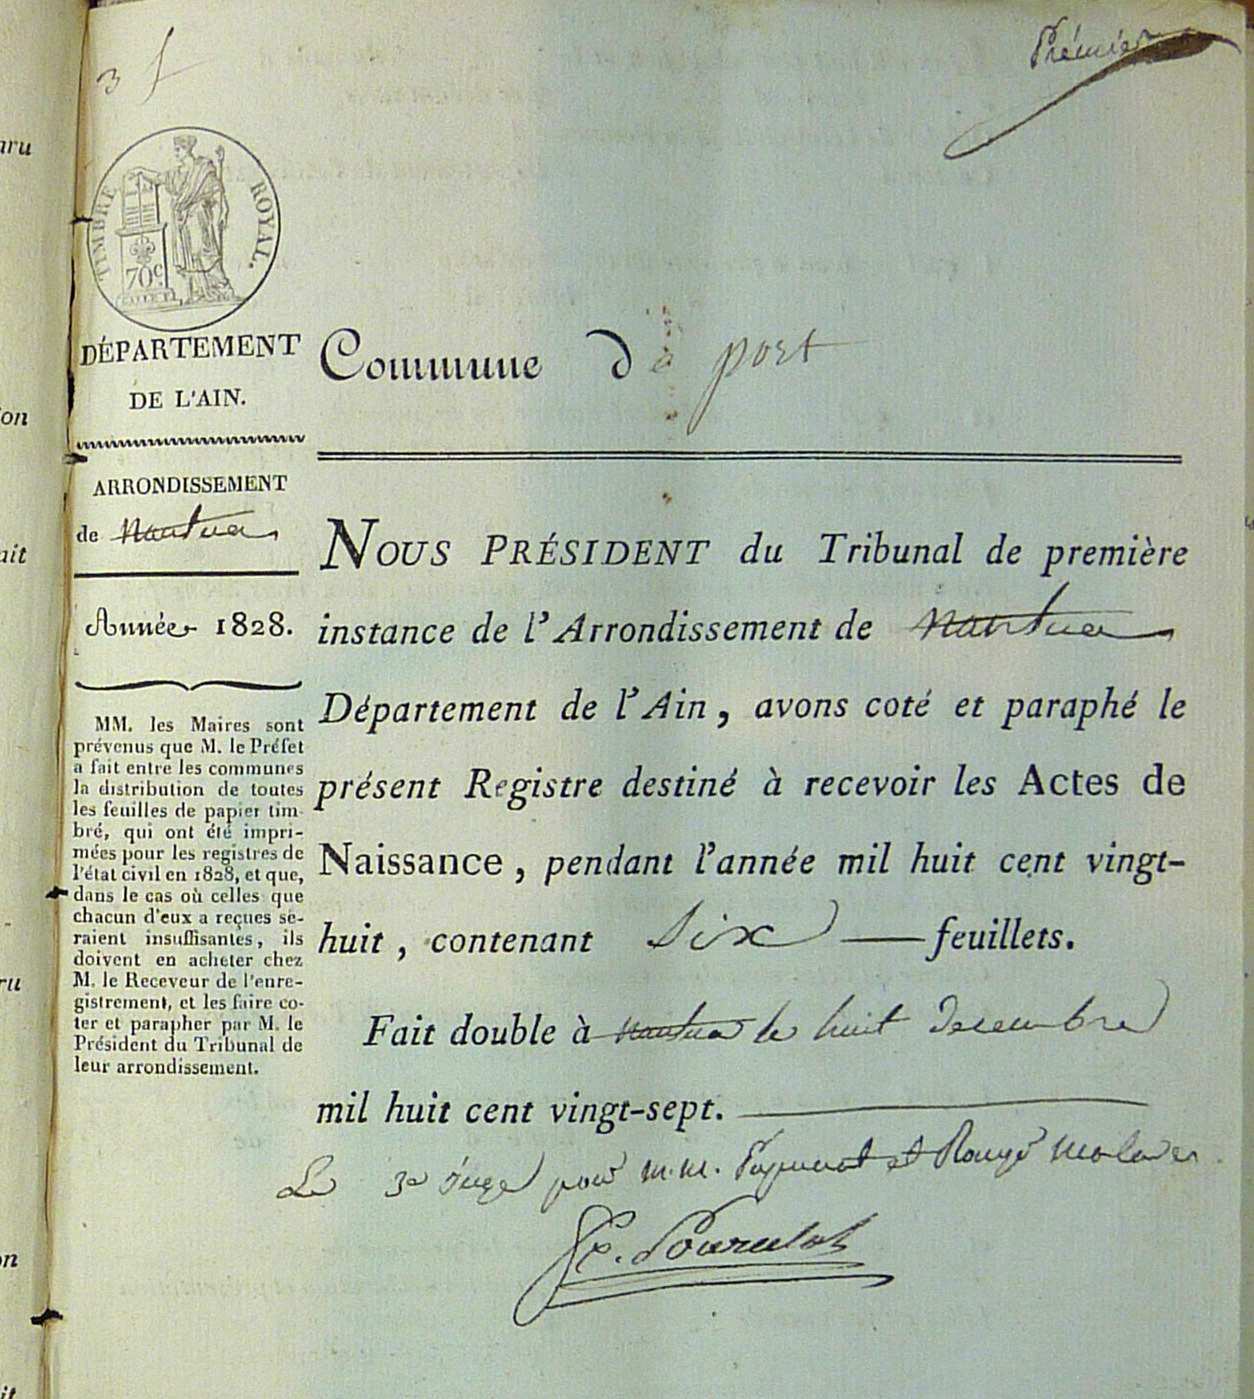 3 f
Première
TIMBRE ROYAL.
70 c
DÉPARTEMENT
DE L'AIN.
Commune de port
ARRONDISSEMENT
de Nantua
Année 1828.
MM. les Maires sont
prévenus que M. le Préfet
a fait entre les communes
la distribution de toutes
les feuilles de papier tim-
bré, qui ont été impri-
mées pour les registres de
l'état civil en 1828, et que,
dans le cas où celles que
chacun d'eux a reçues se-
raient insuffisantes, ils
doivent en acheter chez
M. le Receveur de l'enre-
gistrement, et les faire co-
ter et parapher par M. le
Président du Tribunal de
leur arrondissement.
NOUS PRÉSIDENT du Tribunal de première
instance de l'Arrondissement de Nantua
Département de l'Ain, avons coté et paraphé le
présent Registre destiné à recevoir les Actes de
Naissance, pendant l'année mil huit cent vingt-
huit, contenant Six feuillets.
Fait double à Nantua le huit Decembre
mil huit cent vingt-sept.
Le 3e Juge pour M.M. et malades